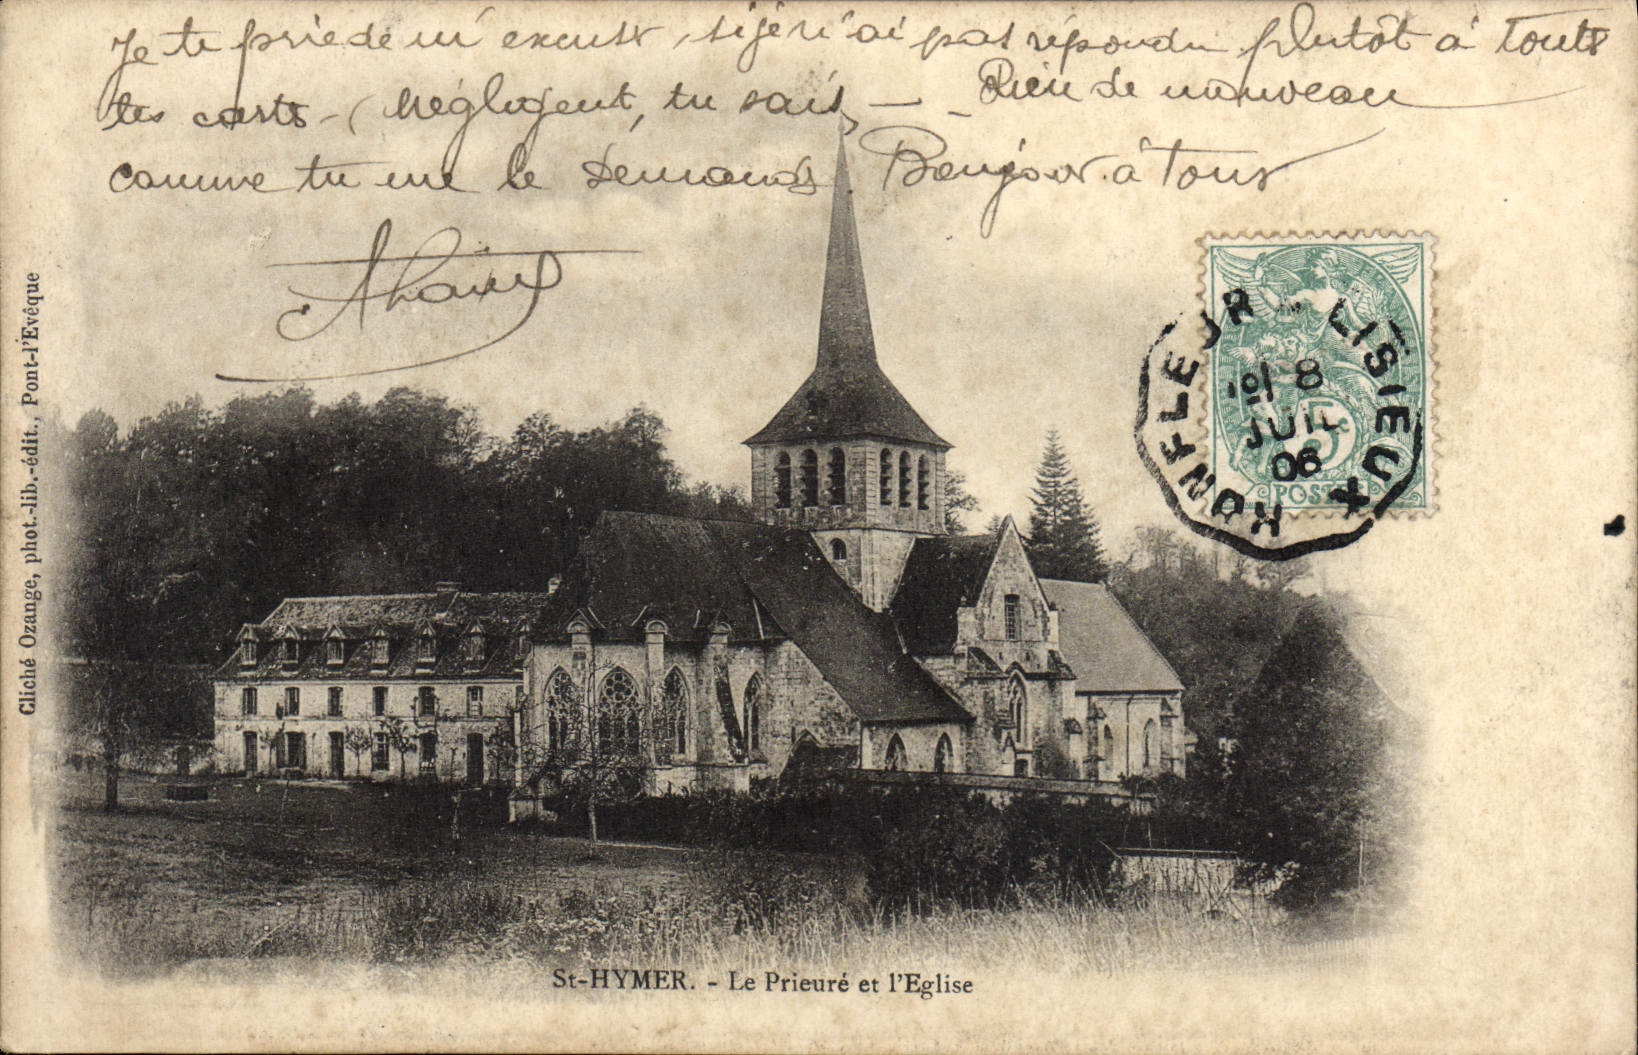 Je te prie de m'excuser, si je n'ai pas répondu plutôt à toutes
tes cartes - (Négligent, tu sais, - - Rien de nouveau
comme tu me le demandes. Bonjour à tous
Cliché Ozange, phot.-lib.-édit., Pont-l'Evêque
HONFLEUR LISIEUX
8
JUIL
06
5c
POSTES
St-HYMER. - Le Prieuré et l'Eglise